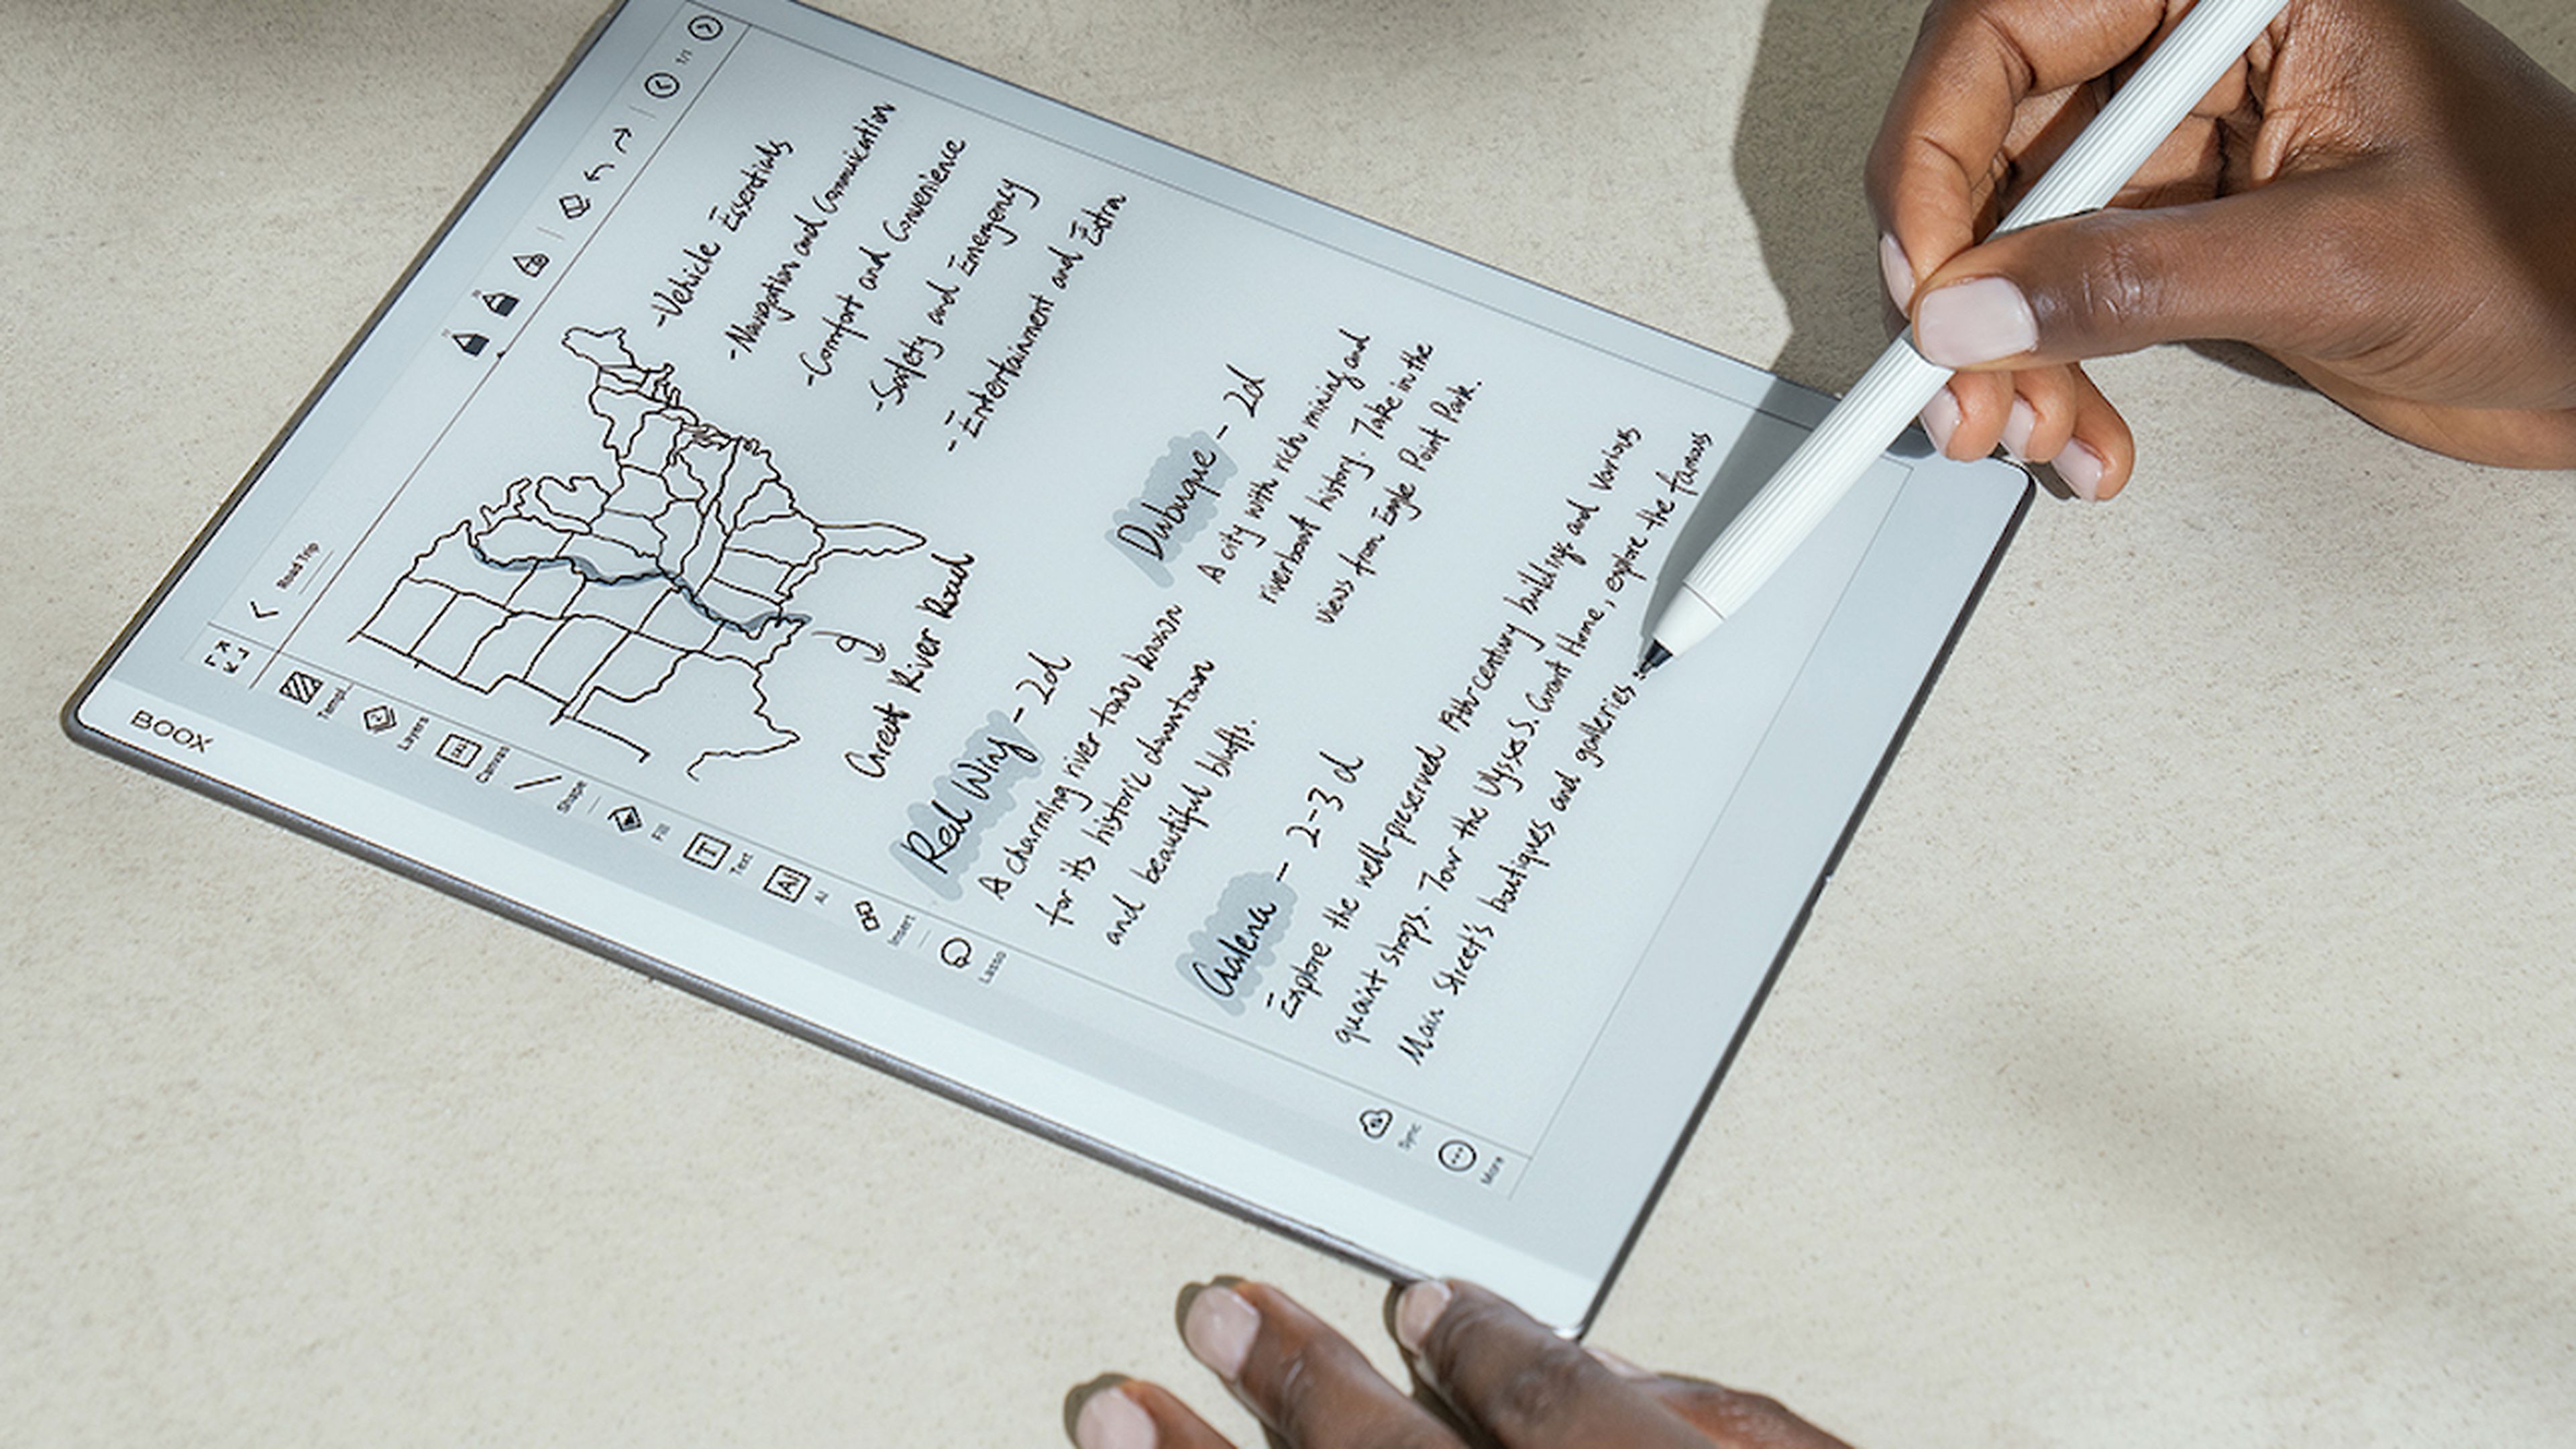 BOOX
Road Trip
1/1
Templ...
Layers
Canvas
Shape
Fill
Text
AI
Insert
Lasso
Sync
More
-Vehicle Essentials
-Navigation and Communication
-Comfort and Convenience
-Safety and Emergency
-Entertainment and Extra
Great River Road
Red Wing - 2d
A charming river town known
for its historic downtown
and beautiful bluffs.
Dubuque - 2d
A city with rich mining and
riverboat history. Take in the
views from Eagle Point Park.
Galena - 2-3 d
Explore the well-preserved 19th century buildings and various
quaint shops. Tour the Ulysses S. Grant Home, explore the famous
Main Street's boutiques and galleries.